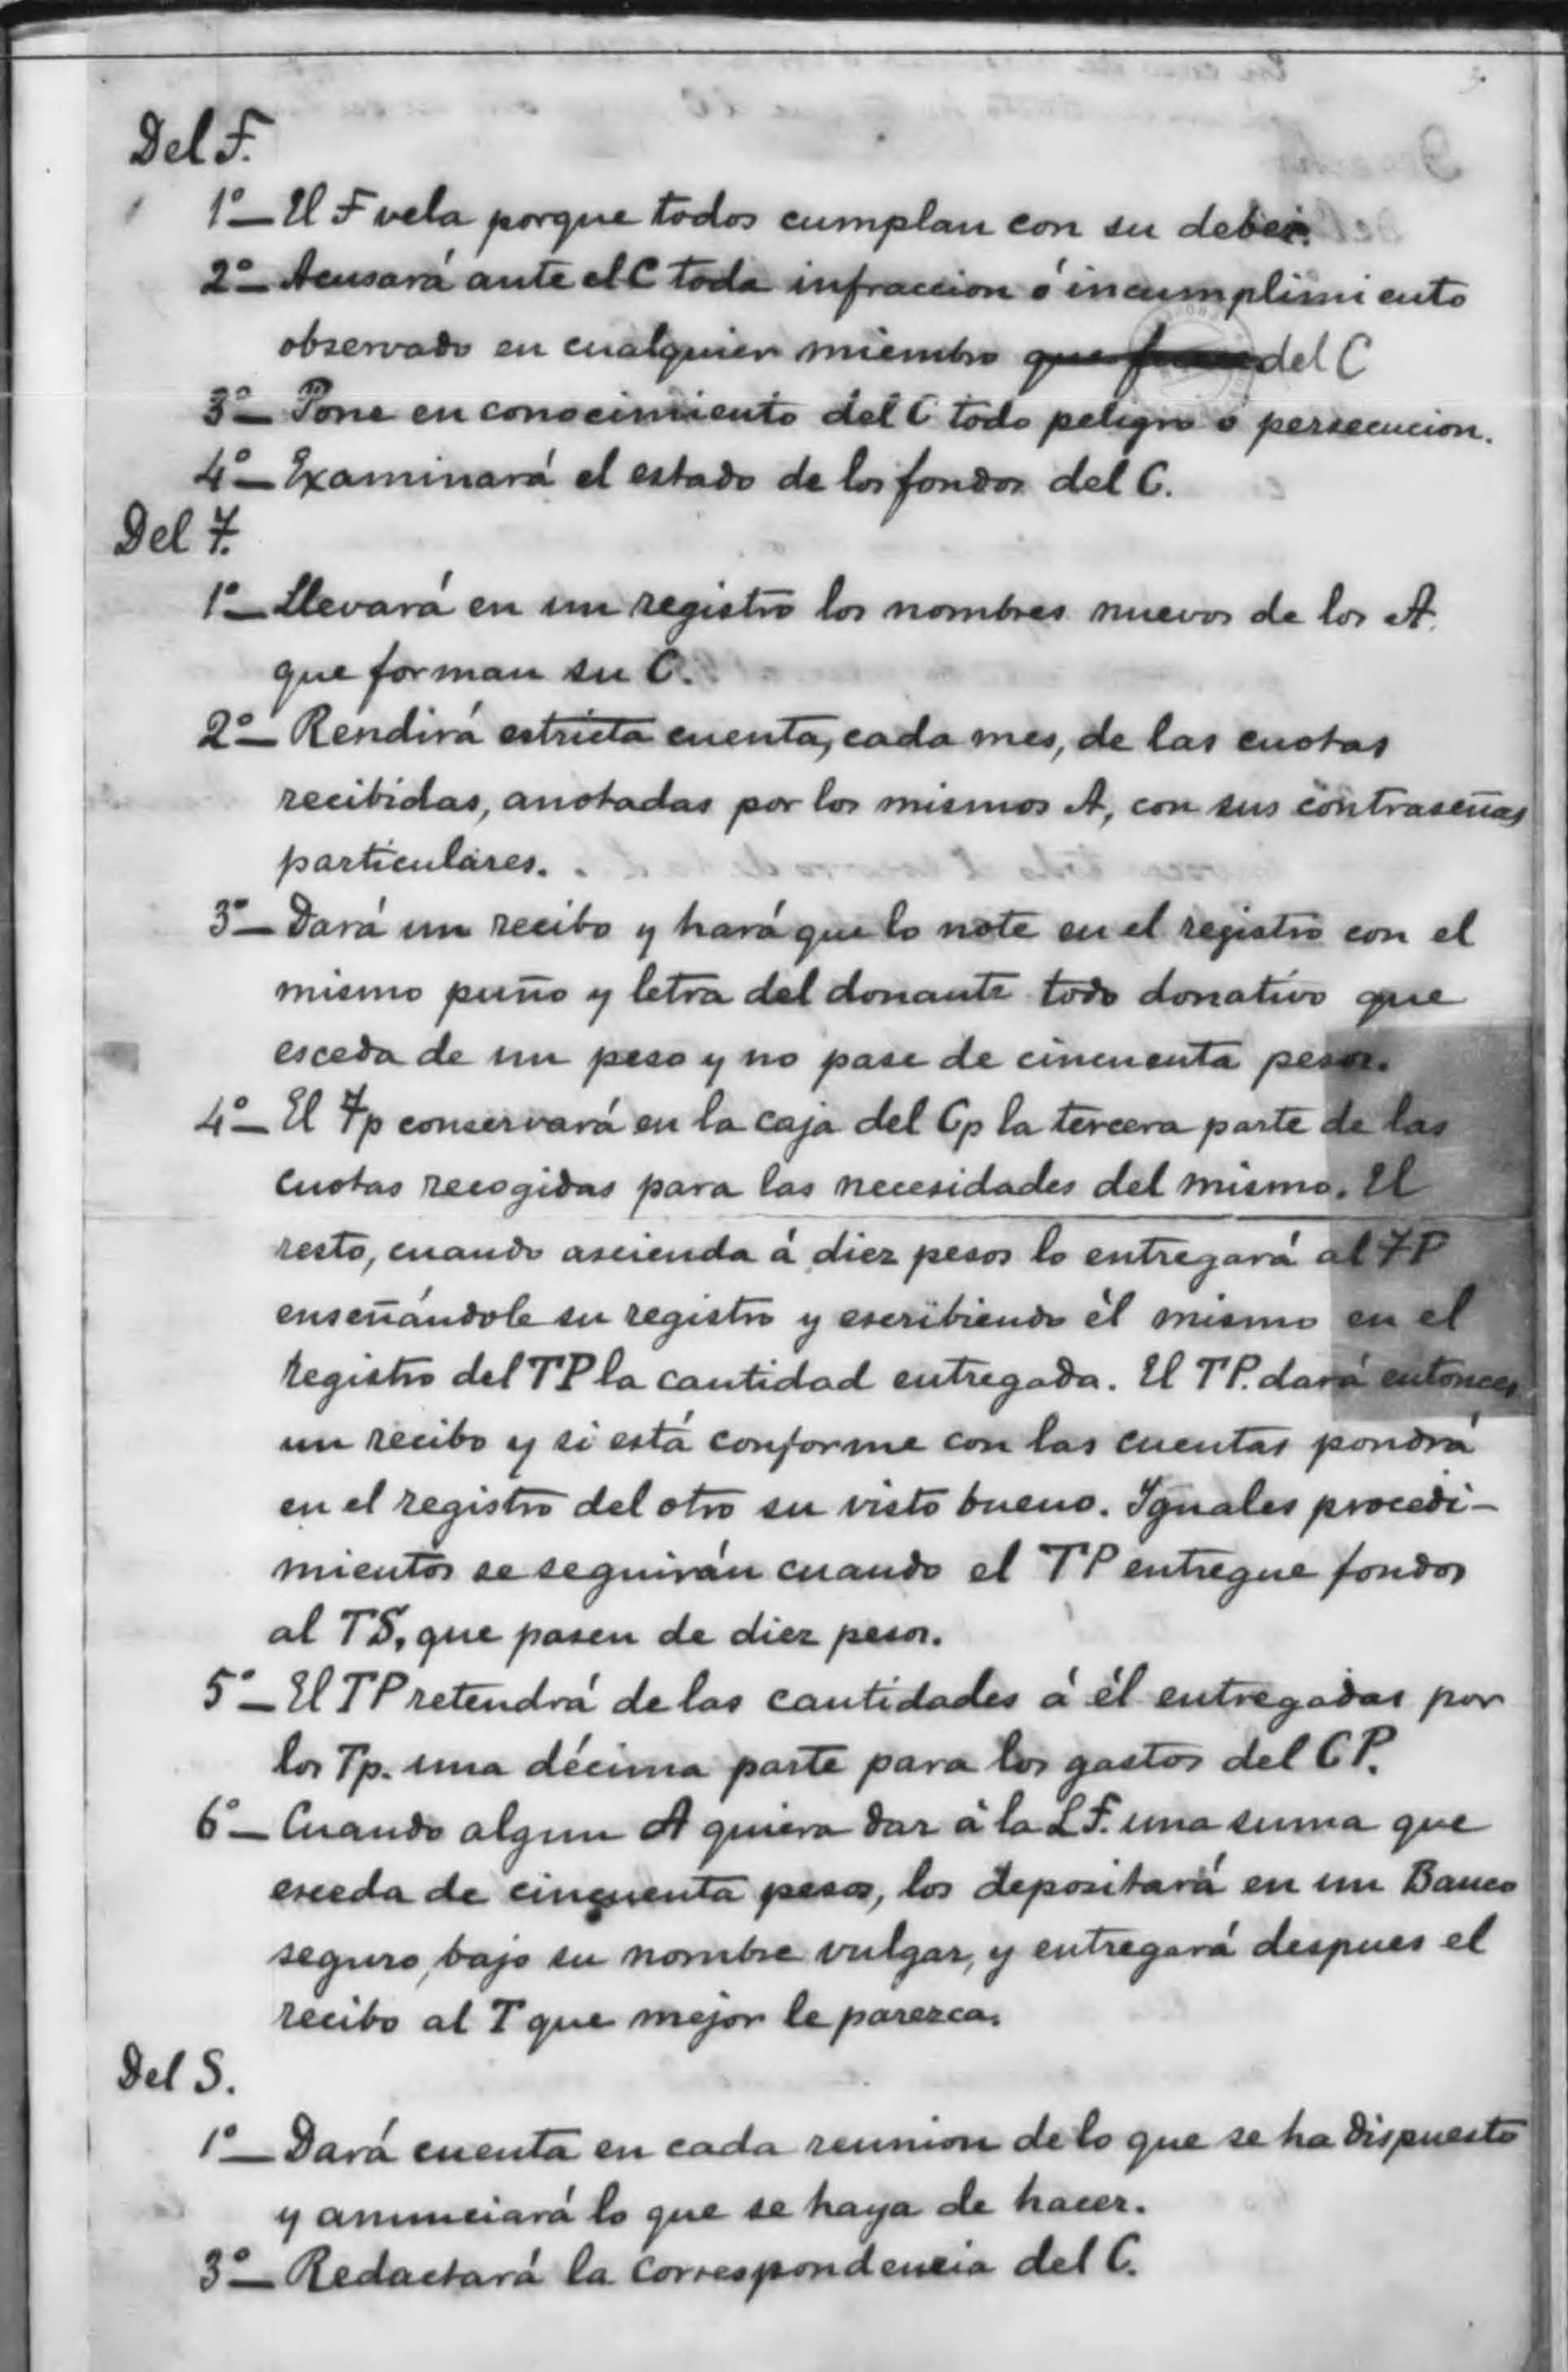 Del F.
1º— El F vela porque todos cumplan con su deber.
2º— Acusará ante el C toda infraccion ó incumplimiento
observado en cualquier miembro del C
3º— Pone en conocimiento del C todo peligro o persecucion.
4º— Examinará el estado de los fondos del C.
Del T.
1º— Llevará en un registro los nombres nuevos de los A.
que forman su C.
2º— Rendirá estricta cuenta, cada mes, de las cuotas
recibidas, anotadas por los mismos A, con sus contraseñas
particulares.
3º— Dará un recibo y hará que lo note en el registro con el
mismo puño y letra del donante todo donativo que
esceda de un peso y no pase de cincuenta pesos.
4º— El Tp conservará en la caja del Cp la tercera parte de las
cuotas recogidas para las necesidades del mismo. El
resto, cuando ascienda á diez pesos lo entregará al TP
enseñándole su registro y escribiendo él mismo en el
registro del TP la cantidad entregada. El TP. dará entonces
un recibo y si está conforme con las cuentas pondrá
en el registro del otro su visto bueno. Iguales procedi-
mientos se seguirán cuando el TP entregue fondos
al TS, que pasen de diez pesos.
5º— El TP retendrá de las cantidades á él entregadas por
los Tp. una décima parte para los gastos del CP.
6º— Cuando algun A quiera dar á la L F. una suma que
esceda de cincuenta pesos, los depositará en un Banco
seguro, bajo su nombre vulgar, y entregará despues el
recibo al T que mejor le parezca.
Del S.
1º— Dará cuenta en cada reunion de lo que se ha dispuesto
y anunciará lo que se haya de hacer.
3º— Redactará la correspondencia del C.